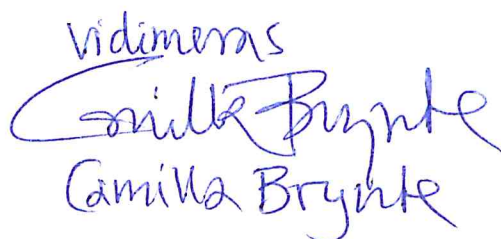 Vidimeras
Camilla Brynte
Camilla Brynte